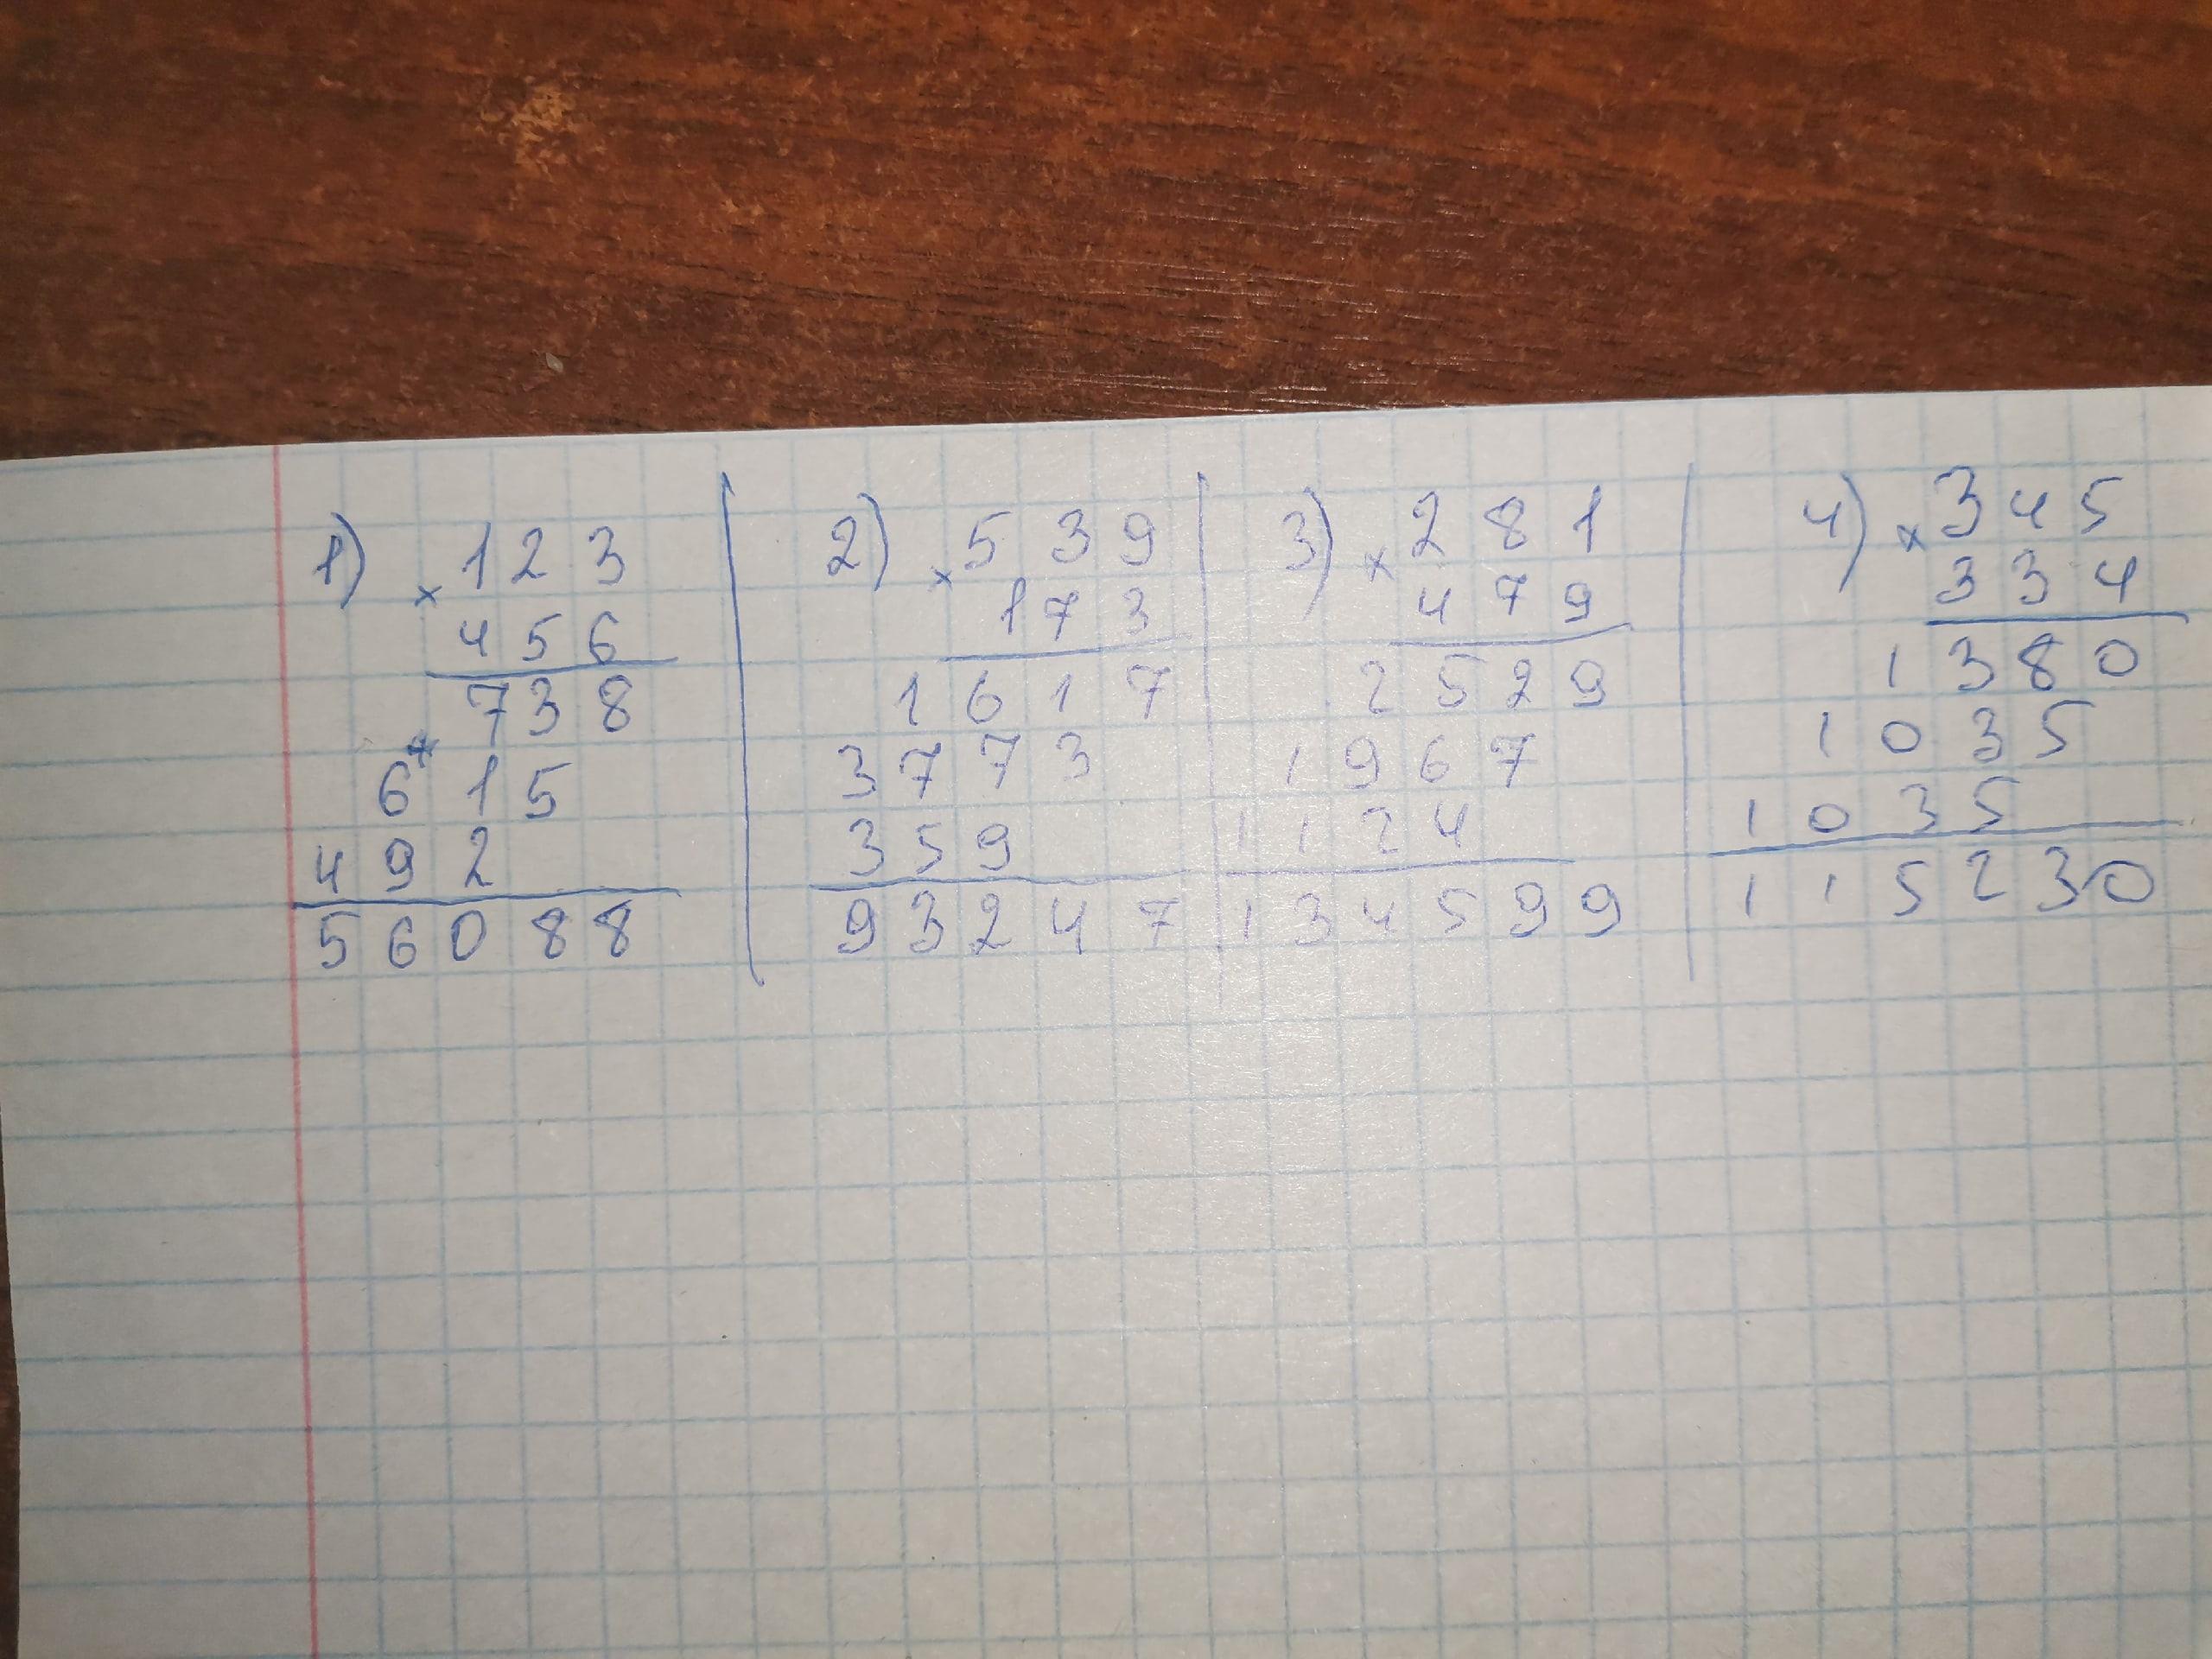 1) × 1 2 3
4 5 6
7 3 8
+
6 1 5
4 9 2
5 6 0 8 8
2) × 5 3 9
1 7 3
1 6 1 7
3 7 7 3
3 5 9
9 3 2 4 7
3) × 2 8 1
4 7 9
2 5 2 9
1 9 6 7
1 1 2 4
1 3 4 5 9 9
4) × 3 4 5
3 3 4
1 3 8 0
1 0 3 5
1 0 3 5
1 1 5 2 3 0